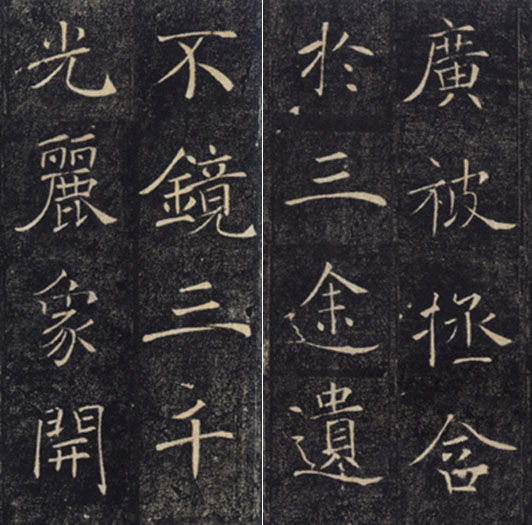 廣被拯含
於三途遺
不鏡三千
光麗象開